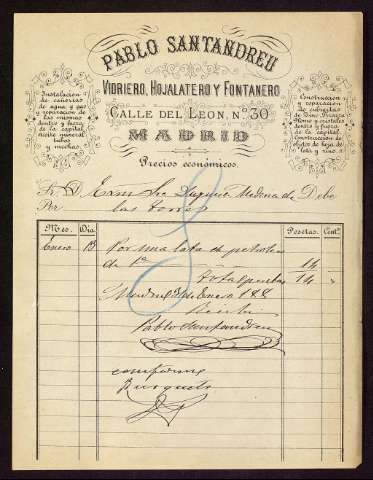 PABLO SANTANDREU
VIDRIERO, HOJALATERO Y FONTANERO
CALLE DEL LEON, Nº 30
MADRID
Precios económicos.
Instalacion
de cañerías
de agua y gas
y reparacion de
las mismas
dentro y fuera
de la capital.
Construccion
y reparacion
de cubiertas
de Zinc, Pizarra,
Plomo y cristales
dentro y fuera
de la capital.
Construccion de
objetos de hoja de
lata y zinc.
Medina de Debe
Por las torres
Mes. Dia. Pesetas. Cent.
Enero 13 Por una lata de petroleo
de 1ª 14
total pesetas 14
Recibí
Pablo Santandreu
conforme